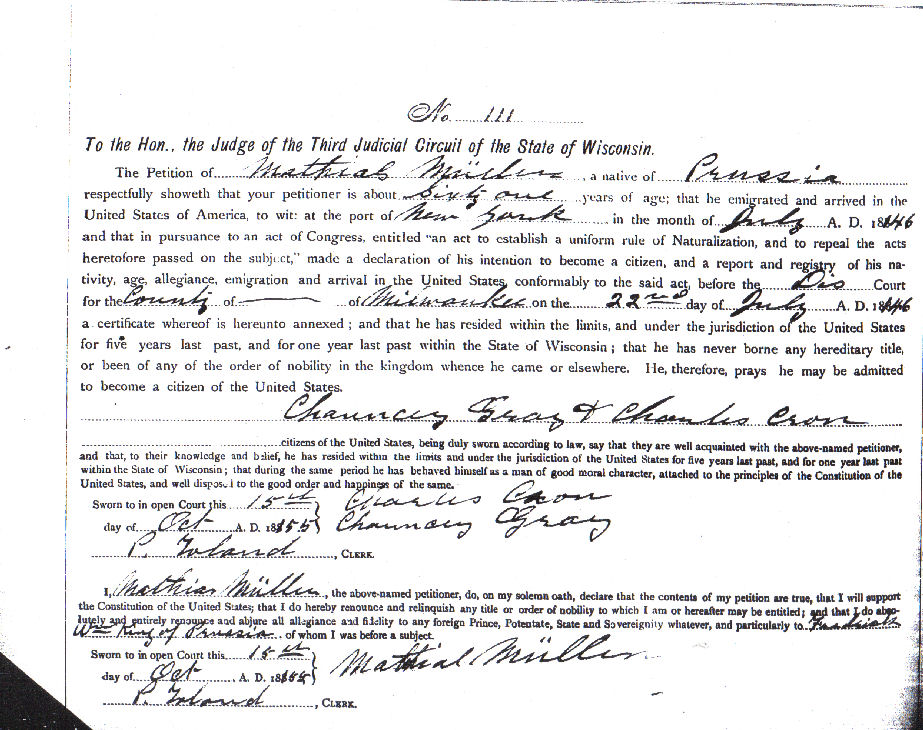 No. 111
To the Hon., the Judge of the Third Judicial Circuit of the State of Wisconsin.
The Petition of Mathias Müller, a native of Prussia
respectfully showeth that your petitioner is about Sixty one years of age; that he emigrated and arrived in the
United States of America, to wit: at the port of New York in the month of July A. D. 1846
and that in pursuance to an act of Congress, entitled "an act to establish a uniform rule of Naturalization, and to repeal the acts
heretofore passed on the subject," made a declaration of his intention to become a citizen, and a report and registry of his na-
tivity, age, allegiance, emigration and arrival in the United States, conformably to the said act, before the Dis Court
for the County of of Milwaukee on the 22nd day of July A. D. 1846
a certificate whereof is hereunto annexed; and that he has resided within the limits, and under the jurisdiction of the United States
for five years last past, and for one year last past within the State of Wisconsin; that he has never borne any hereditary title,
or been of any of the order of nobility in the kingdom whence he came or elsewhere. He, therefore, prays he may be admitted
to become a citizen of the United States.
Chauncey Gray & Charles Cron
citizens of the United States, being duly sworn according to law, say that they are well acquainted with the above-named petitioner,
and that, to their knowledge and belief, he has resided within the limits and under the jurisdiction of the United States for five years last past, and for one year last past
within the State of Wisconsin; that during the same period he has behaved himself as a man of good moral character, attached to the principles of the Constitution of the
United States, and well disposed to the good order and happiness of the same.
Sworn to in open Court this 15th Charles Cron
day of Oct A. D. 1855 Chauncey Gray
P. Toland, CLERK.
I, Mathias Müller, the above-named petitioner, do, on my solemn oath, declare that the contents of my petition are true, that I will support
the Constitution of the United States; that I do hereby renounce and relinquish any title or order of nobility to which I am or hereafter may be entitled; and that I do abso-
lutely and entirely renounce and abjure all allegiance and fidelity to any foreign Prince, Potentate, State and Sovereignity whatever, and particularly to Fredrick
Wm King of Prussia of whom I was before a subject.
Sworn to in open Court this 15th Mathias Müller
day of Oct A. D. 1855
P. Toland, CLERK.